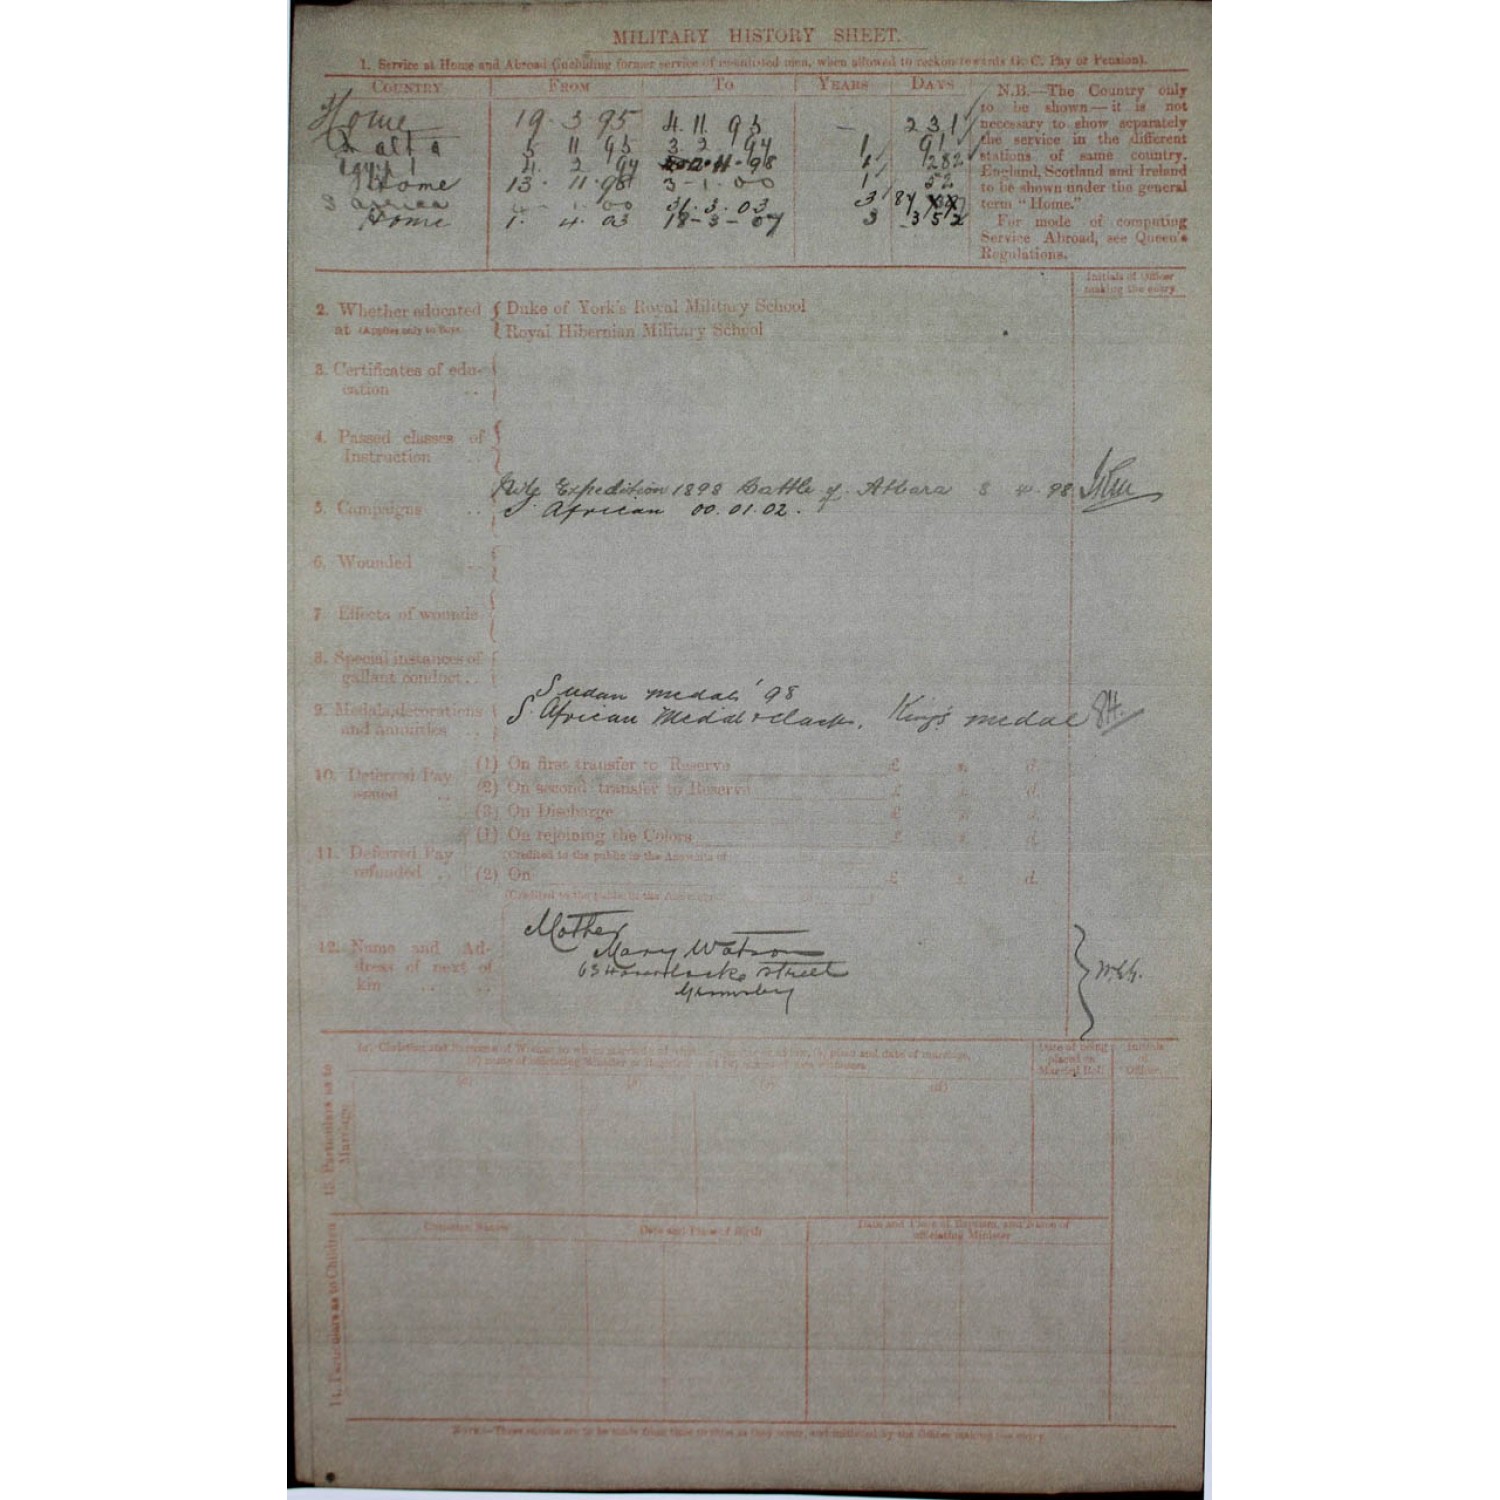 MILITARY HISTORY SHEET.
1. Service at Home and Abroad (including former service of re-enlisted men, when allowed to reckon towards G. C. Pay or Pension).
COUNTRY FROM TO YEARS DAYS
Home 19. 3. 95 4. 11. 95 — 231
Malta 5 11 95 3. 2. 97 1 91
Egypt 4. 2. 97 12. 11. 98 1 282
Home 13. 11. 98 3 - 1. 00 1 52
S Africa 4 - 1. 00 31. 3. 03 3 87
Home 1. 4. 03 18 - 3 - 07 3 352
N.B.—The Country only
to be shown—it is not
necessary to show separately
the service in the different
stations of same country.
England, Scotland and Ireland
to be shown under the general
term "Home."
For mode of computing
Service Abroad, see Queen's
Regulations.
Initials of Officer
making the entry
2. Whether educated Duke of York's Royal Military School
at (Applies only to Boys) Royal Hibernian Military School
3. Certificates of edu-
cation ..
4. Passed classes of
Instruction ..
Nile Expedition 1898 Battle of Atbara 8 4. 98
5. Campaigns .. S. African 00. 01. 02.
6. Wounded ..
7. Effects of wounds
8. Special instances of
gallant conduct ..
Sudan medal '98
9. Medals, decorations S. African Medal & clasps, King's medal
and annuities ..
10. Deferred Pay (1) On first transfer to Reserve £ s. d.
issued .. (2) On second transfer to Reserve £ s. d.
(3) On Discharge £ s. d.
(1) On rejoining the Colors £ s. d.
11. Deferred Pay (Credited to the public in the Accounts of
refunded .. (2) On £ s. d.
(Credited to the public in the Accounts
Mother
12. Name and Ad- Mary Watson
dress of next of 63 street
kin .. .. Grimsby
W.G.
13. Particulars as to
Marriage
Date of being
placed on
Married Roll
Initials
of
Officer
(a) (b) (c) (d)
14. Particulars as to Children
Christian Names Date and Place of Birth Date and Place of Baptism, and Name of
officiating Minister
NOTE.—These entries are to be made from time to time as they occur, and initialled by the Officer making the entry.